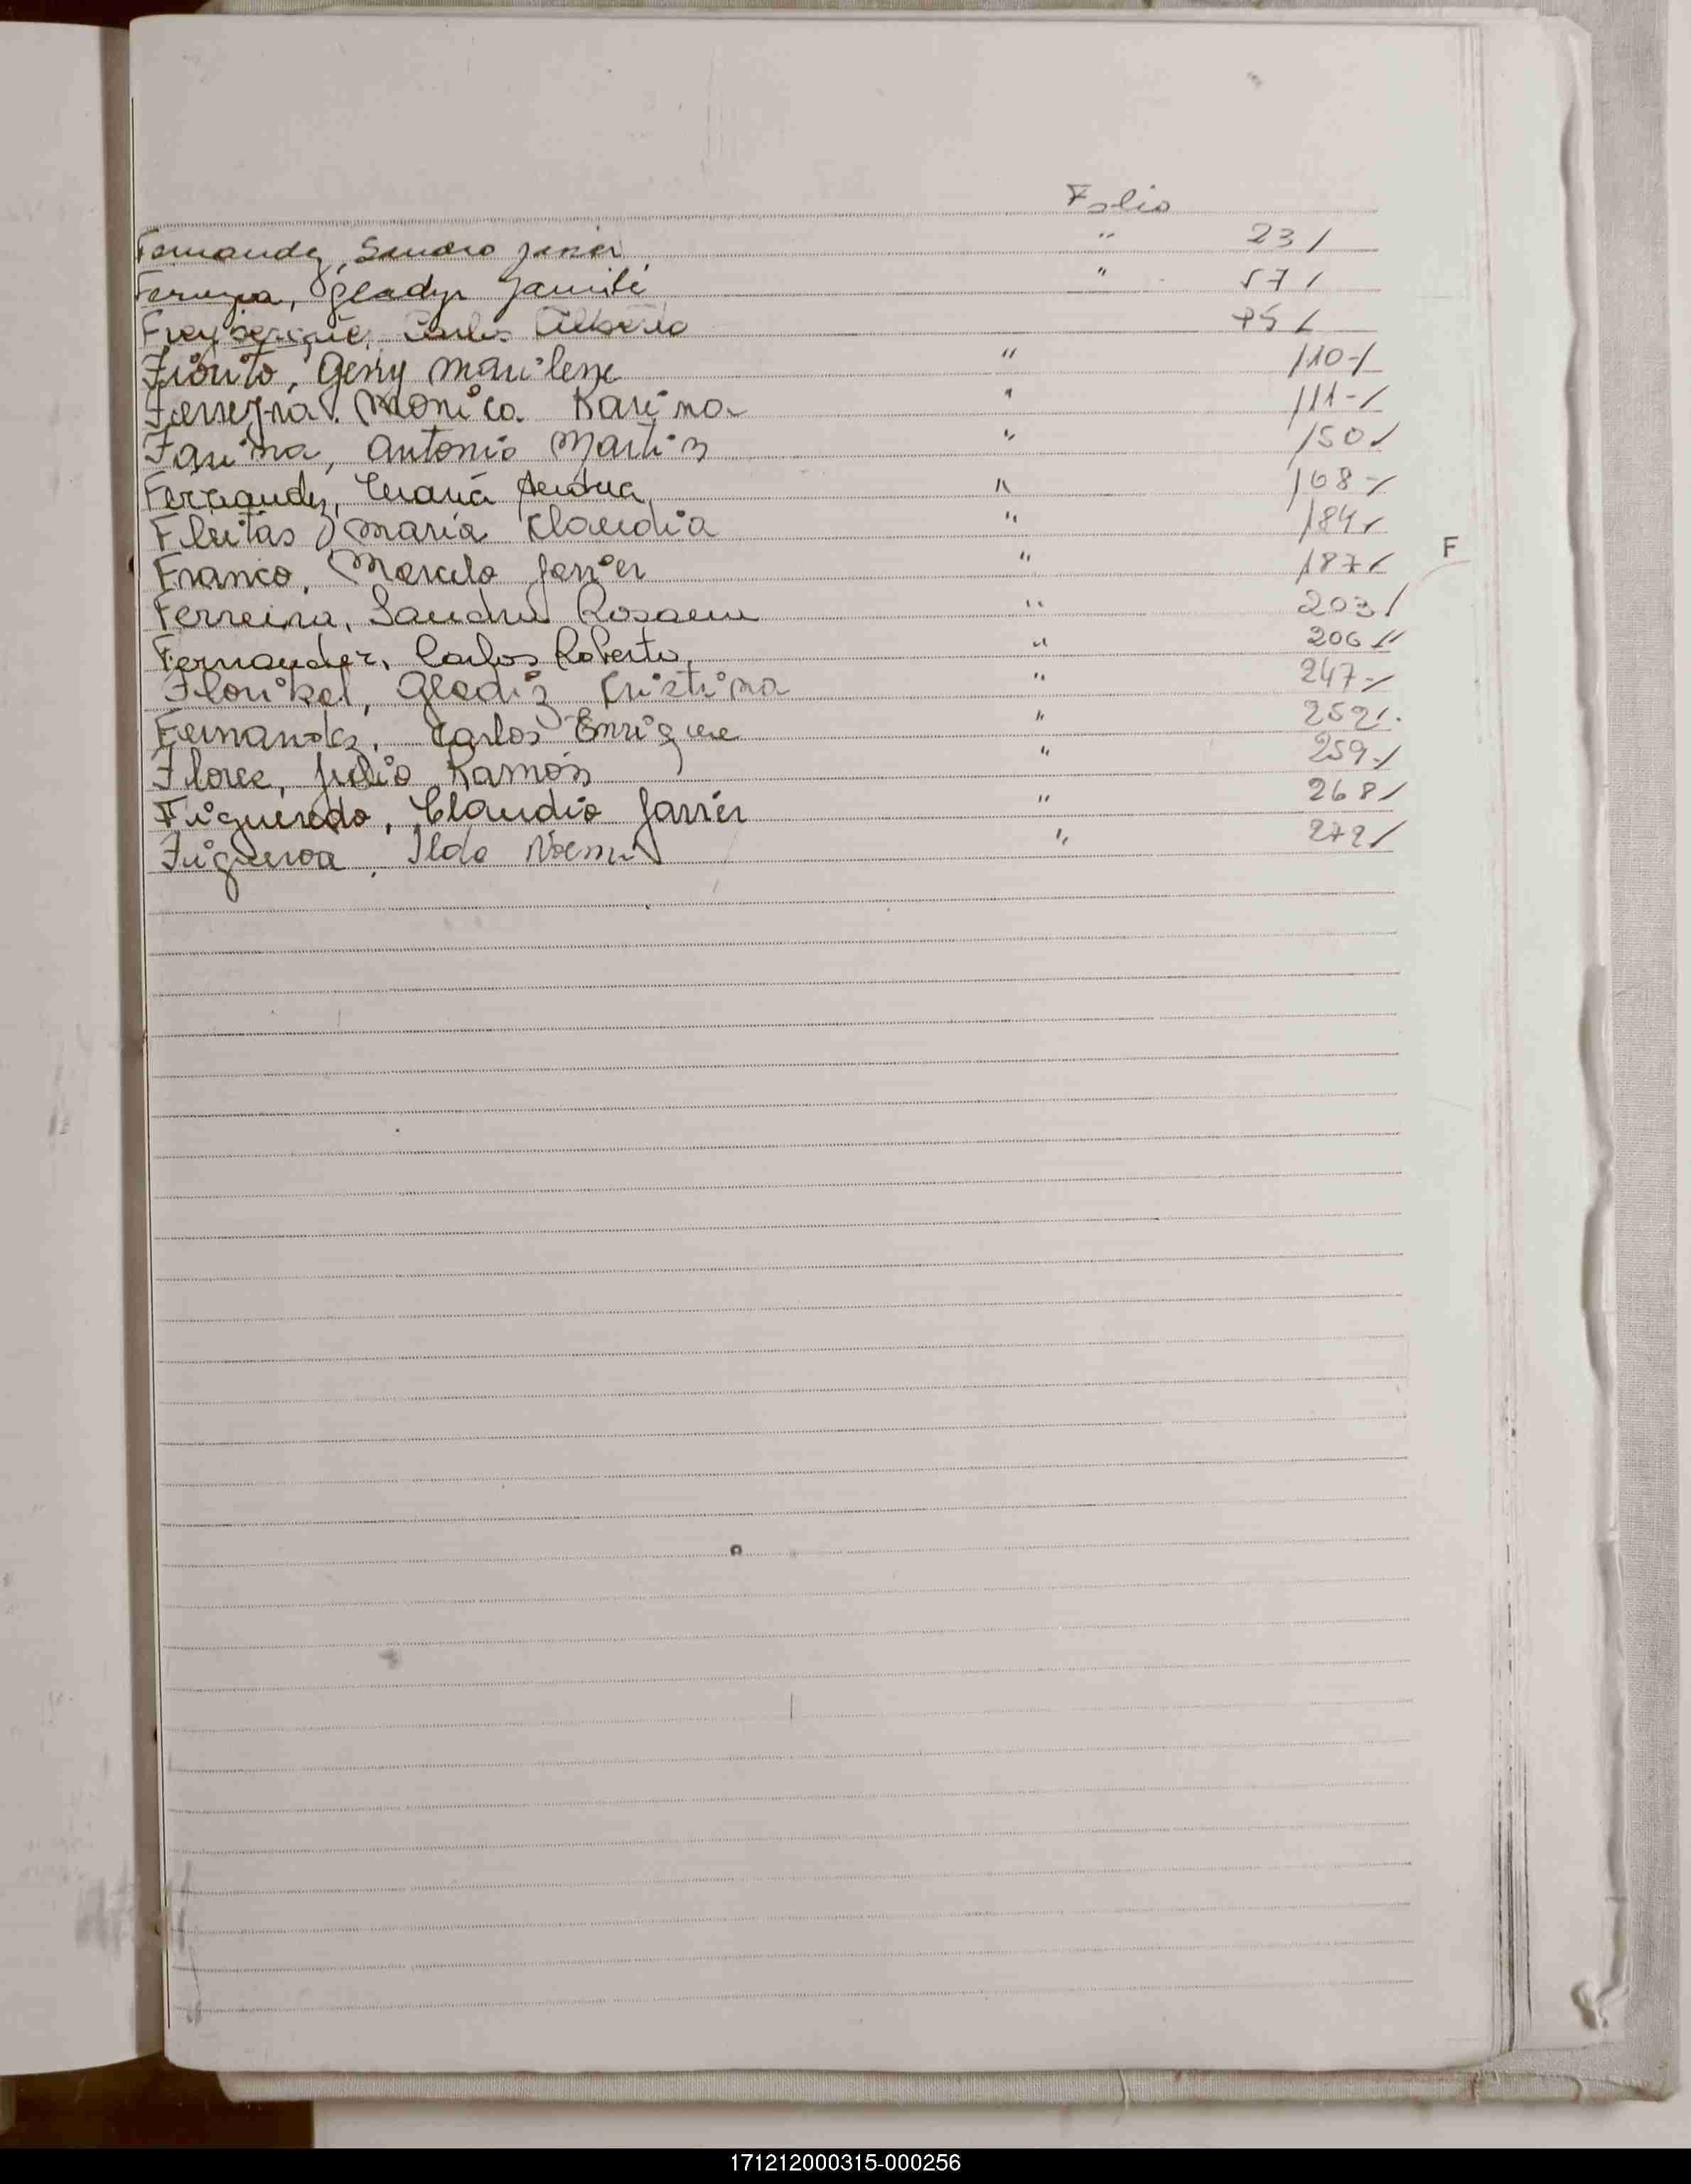 Folio
Fernandez, Sandro Javier " 23/
Ferreyra, Gladys Yamili " 57/
Carlos Alberto 75/
Fiorito, Geny Marilene " 110-/
Ferreyra Monica Karina " 111-/
Farina, Antonio Martin " 150/
Fernandez, Maria Andrea " 168-/
Fleitas Maria Claudia " 184/
Franco, Marcelo Javier " 187/
F
Ferreira, Sandra Rosana " 203/
Fernandez, Carlos Roberto " 206//
Gladiz Cristina " 247-/
Fernandez, Carlos Enrique " 252/.
Flores, Julio Ramón " 259-/
Figueredo, Claudio Javier " 268/
Figueroa, Ilda Noemi " 272/
171212000315-000256